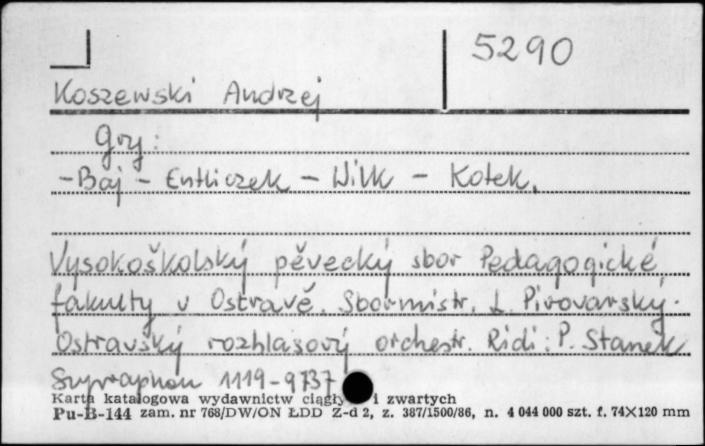 5290
Koszewski Andrzej
Gry:
- Baj - Entliczek - Wilk - Kotek.
Vysokoškolský pěvecký sbor Pedagogické
fakulty v Ostravě. Sbormistr. L. Pivovarský.
Ostravský rozhlasový orchestr. Ridi: P. Stanek
Supraphon 1119-9737
Karta katalogowa wydawnictw ciągły i zwartych
Pu-B-144 zam. nr 768/DW/ON ŁDD Z-d 2, z. 387/1500/86, n. 4 044 000 szt. f. 74×120 mm